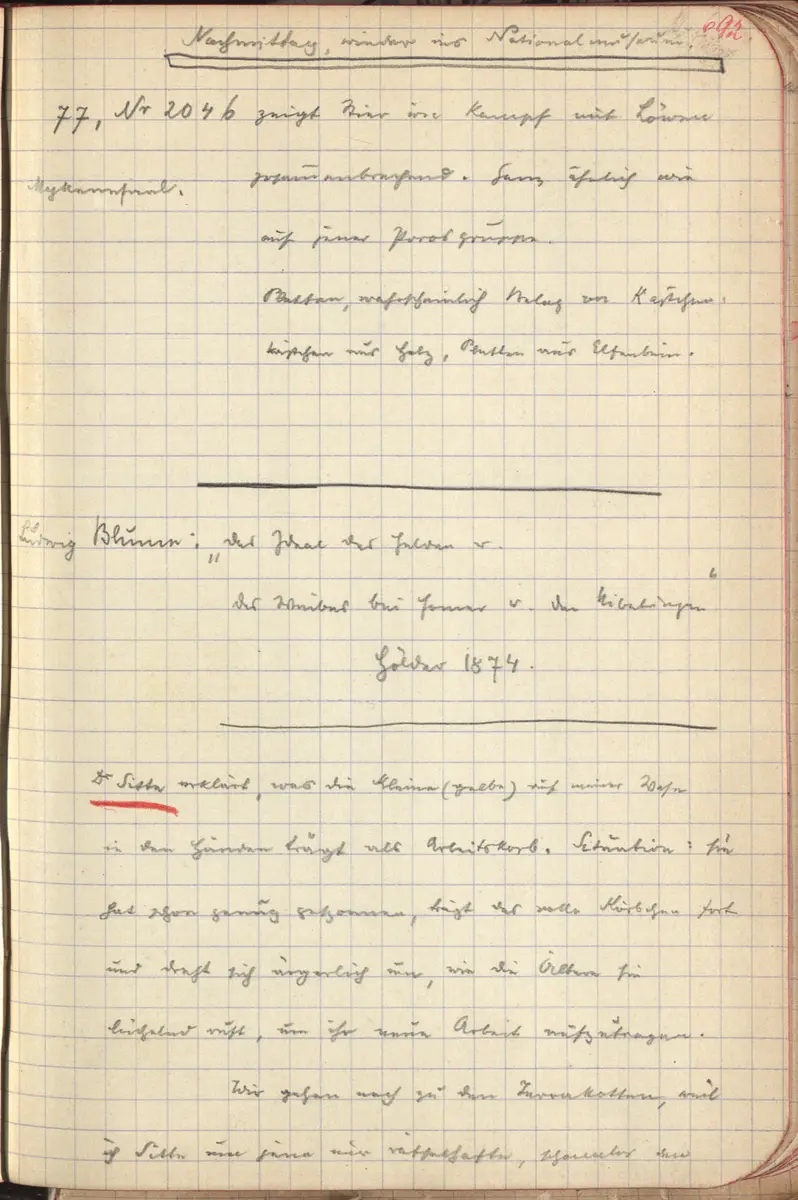 692
Nachmittag, wieder ins Nationalmuseum.
77, Nr 2046 zeigt Stier im Kampf mit Löwen
Mykenensaal.
zusam̅enbrechend. Ganz ähnlich wie
auf jener Porosgruppe.
Platten, wahrscheinlich Belag von Kästchen:
Kästchen aus Holz, Platten aus Elfenbein.
Ludwig Blume: „das Ideal des Helden u.
des Weibes bei Homer u. den Nibelungen“
Hölder 1874.
Dr Sitte erklärt, was die Kleine (gelbe) auf meiner Vase
in den Händen trägt als Arbeitskorb. Situation: sie
hat schon genug gesponnen, trägt das volle Körbchen fort
und dreht sich ärgerlich um, wie die Ältere sie
lächelnd ruft, um ihr neue Arbeit aufzutragen.
Wir gehen noch zu den Terrakotten, weil
ich Sitte um jene mir rätselhafte, den